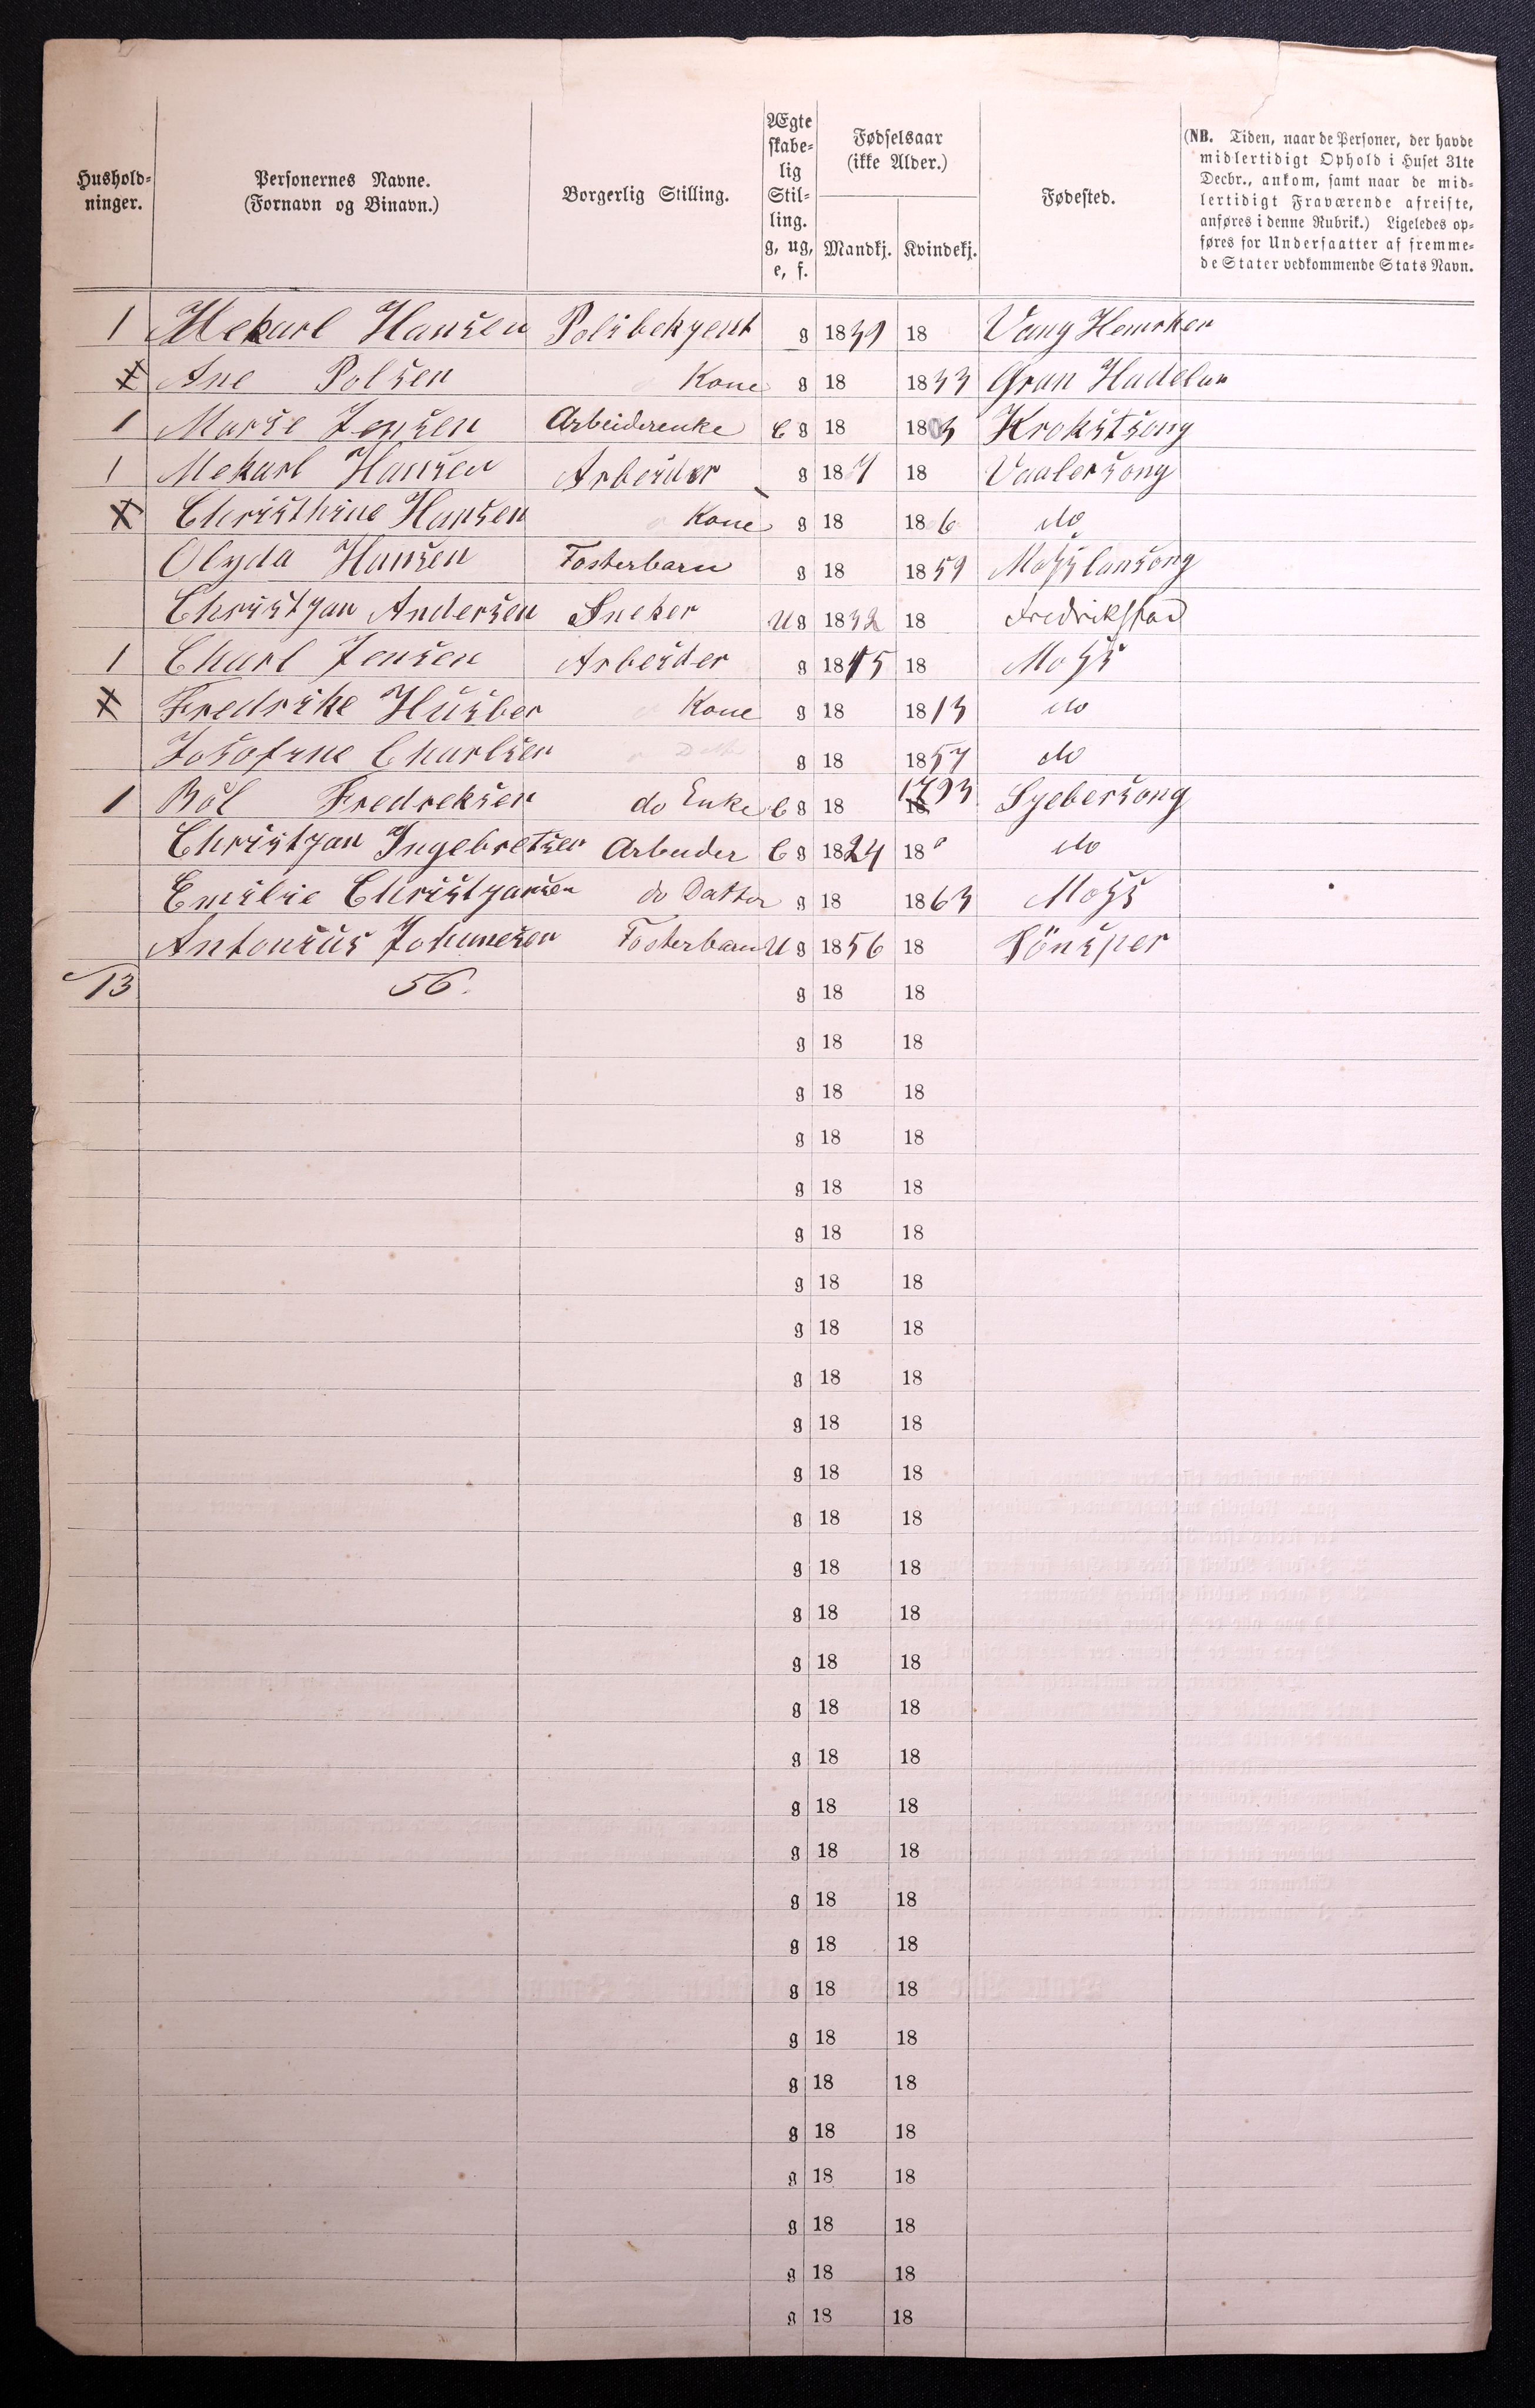 Hushold-
ninger.
Personernes Navne.
(Fornavn og Binavn.)
Borgerlig Stilling.
Ægte
skabe-
lig
Stil-
ling.
g, ug,
e, f.
Fødselsaar
(ikke Alder.)
Mandkj. Kvindekj.
Fødested.
(NB. Tiden, naar de Personer, der havde
midlertidigt Ophold i Huset 31te
Decbr., ankom, samt naar de mid-
lertidigt Fraværende afreiste,
anføres i denne Rubrik.) Ligeledes op-
føres for Undersaatter af fremme-
de Stater vedkommende Stats Navn.
1 Mekael Hansen Polsbekyent g 1839 18 Vang Hemrken
Ane Polsen Kone g 18 1833 Gran Hadelan
1 Marse Jensen Arbeiderenke E g 18 1803 Krokstsong
1 Mekael Hansen Arbeider g 187 18 Vaalersong
Christhine Hansen Kone g 18 186 do
Olyda Hansen Fosterbarn g 18 1859 Mosslansong
Christjan Andersen Sneker U g 1832 18 Fredrikstad
1 Charl Jensen Arbesder g 1815 18 Moss
Fredrike Husber Kone g 18 1813 do
Josofine Charlsen g 18 1857 do
1 Böl Fredreksen do Enke E g 18 1793 Syebersong
Christjan Ingebretsen Arbeider E g 1824 18 do
Emilie Christjansen do Datter g 18 1863 Moss
Antonsus Johannesen Fosterbarn U g 1856 18 Tönsper
13 56. g 18 18
g 18 18
g 18 18
g 18 18
g 18 18
g 18 18
g 18 18
g 18 18
g 18 18
g 18 18
g 18 18
g 18 18
g 18 18
g 18 18
g 18 18
g 18 18
g 18 18
g 18 18
g 18 18
g 18 18
g 18 18
g 18 18
g 18 18
g 18 18
g 18 18
g 18 18
g 18 18
g 18 18
g 18 18